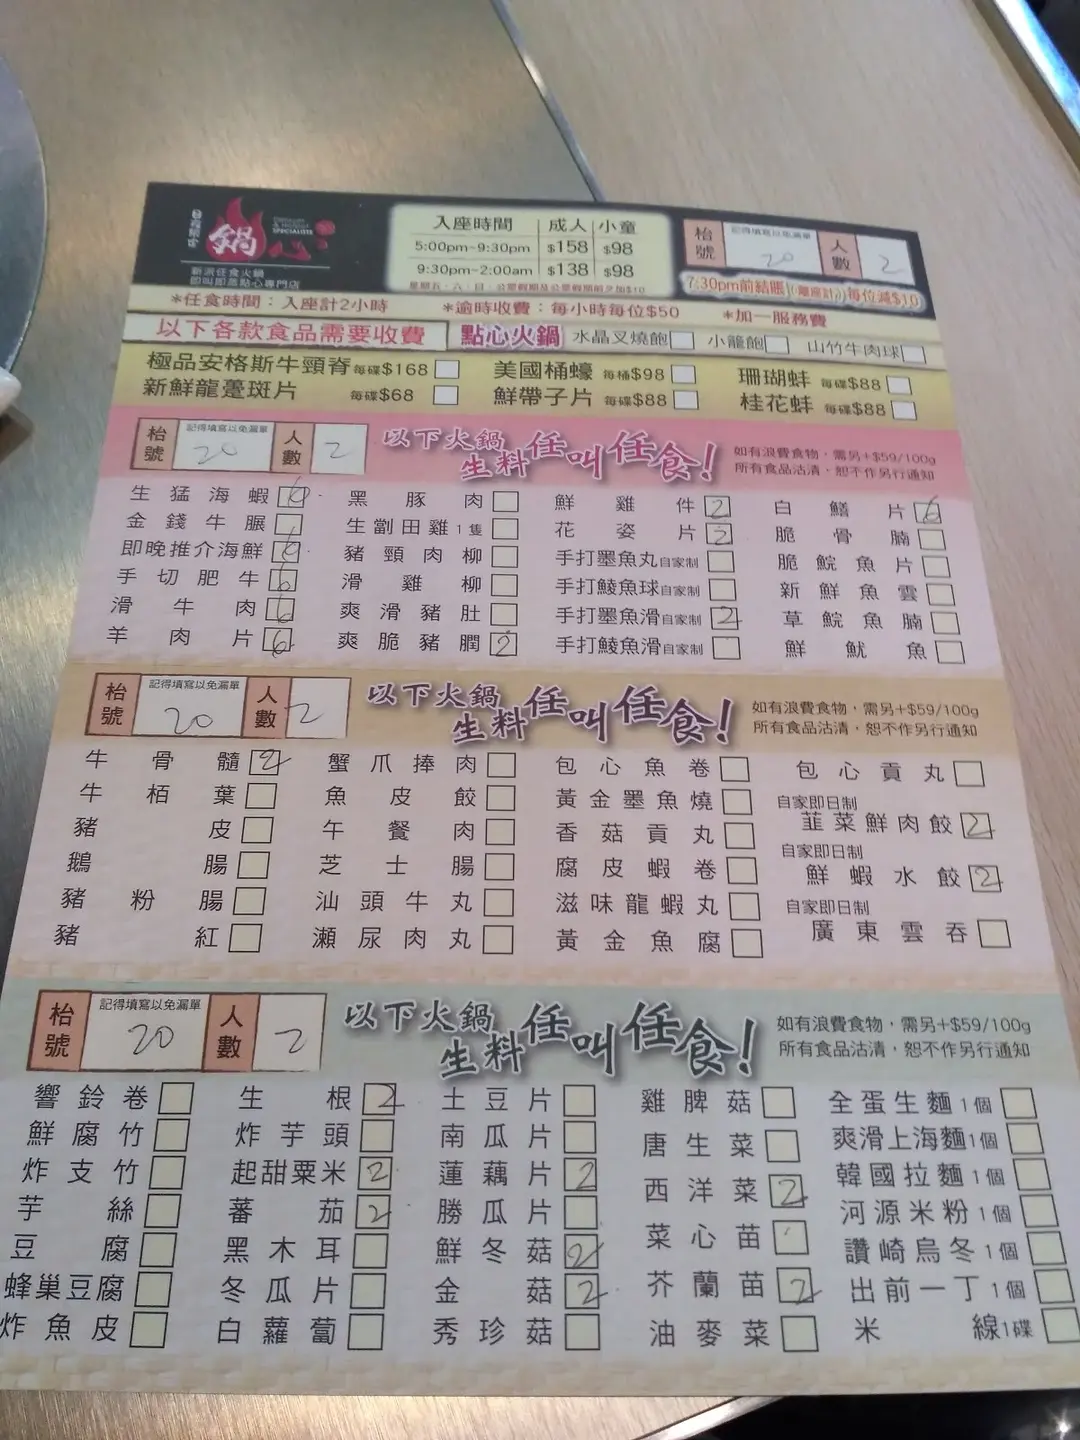 鍋心
SPECIALISTS
新派任食火鍋
即叫即蒸點心專門店
入座時間 成人 小童
5:00pm~9:30pm $158 $98
9:30pm~2:00am $138 $98
星期五、六、日、公眾假期及公眾假期前夕加$10
枱號 記得填寫以免漏單 20 人數 2
7:30pm前結賬(離座計)每位減$10
*任食時間：入座計2小時 *逾時收費：每小時每位$50 *加一服務費
以下各款食品需要收費 點心火鍋 水晶叉燒飽 小籠飽 山竹牛肉球
極品安格斯牛頸脊 每碟$168 美國桶蠔 每桶$98 珊瑚蚌 每碟$88
新鮮龍躉斑片 每碟$68 鮮帶子片 每碟$88 桂花蚌 每碟$88
枱號 記得填寫以免漏單 20 人數 2 以下火鍋生料任叫任食！ 如有浪費食物，需另+$59/100g
所有食品沽清，恕不作另行通知
生猛海蝦 6 黑豚肉 鮮雞件 2 白鱔片 6
金錢牛𦟌 生劏田雞1隻 花姿片 2 脆骨腩
即晚推介海鮮 6 豬頸肉柳 手打墨魚丸自家制 脆鯇魚片
手切肥牛 6 滑雞柳 手打鯪魚球自家制 新鮮魚雲
滑牛肉 6 爽滑豬肚 手打墨魚滑自家制 2 草鯇魚腩
羊肉片 6 爽脆豬膶 2 手打鯪魚滑自家制 鮮魷魚
枱號 記得填寫以免漏單 20 人數 2 以下火鍋生料任叫任食！ 如有浪費食物，需另+$59/100g
所有食品沽清，恕不作另行通知
牛骨髓 2 蟹爪捧肉 包心魚卷 包心貢丸
牛栢葉 魚皮餃 黃金墨魚燒 自家即日制 韮菜鮮肉餃 2
豬皮 午餐肉 香菇貢丸
鵝腸 芝士腸 腐皮蝦卷 自家即日制 鮮蝦水餃 2
豬粉腸 汕頭牛丸 滋味龍蝦丸
豬紅 瀨尿肉丸 黃金魚腐 自家即日制 廣東雲吞
枱號 記得填寫以免漏單 20 人數 2 以下火鍋生料任叫任食！ 如有浪費食物，需另+$59/100g
所有食品沽清，恕不作另行通知
響鈴卷 生根 2 土豆片 雞脾菇 全蛋生麵1個
鮮腐竹 炸芋頭 南瓜片 唐生菜 爽滑上海麵1個
炸支竹 起甜粟米 2 蓮藕片 2 西洋菜 2 韓國拉麵1個
芋絲 蕃茄 2 勝瓜片 菜心苗 河源米粉1個
豆腐 黑木耳 鮮冬菇 2 芥蘭苗 2 讚崎烏冬1個
蜂巢豆腐 冬瓜片 金菇 2 油麥菜 出前一丁1個
炸魚皮 白蘿蔔 秀珍菇 米線1碟